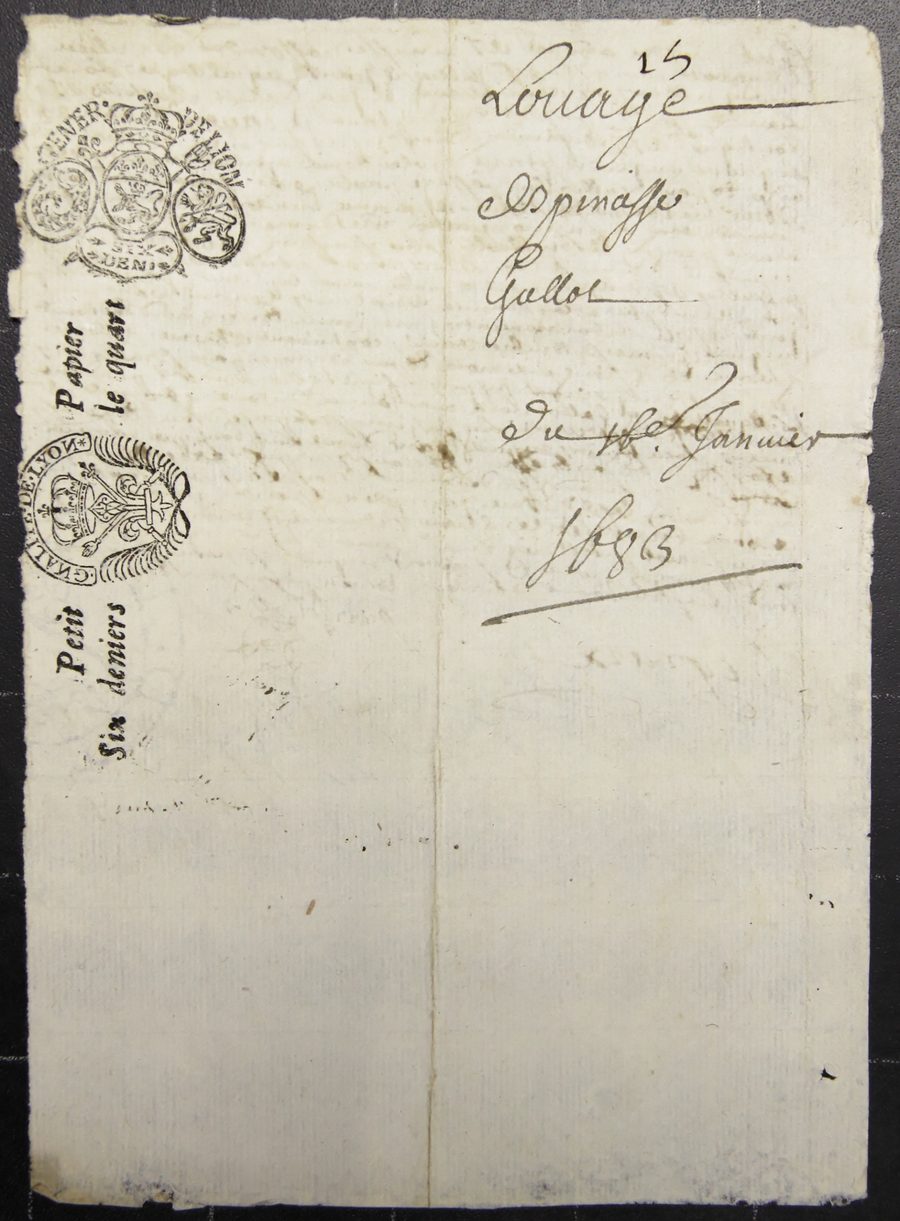 15
Louage
Espinasse
Gallot
du 16e. Januier
1683
GENER. DE LYON
SIX
DEN.
Papier
le quart
GNALITE DE LYON
Petit
Six deniers